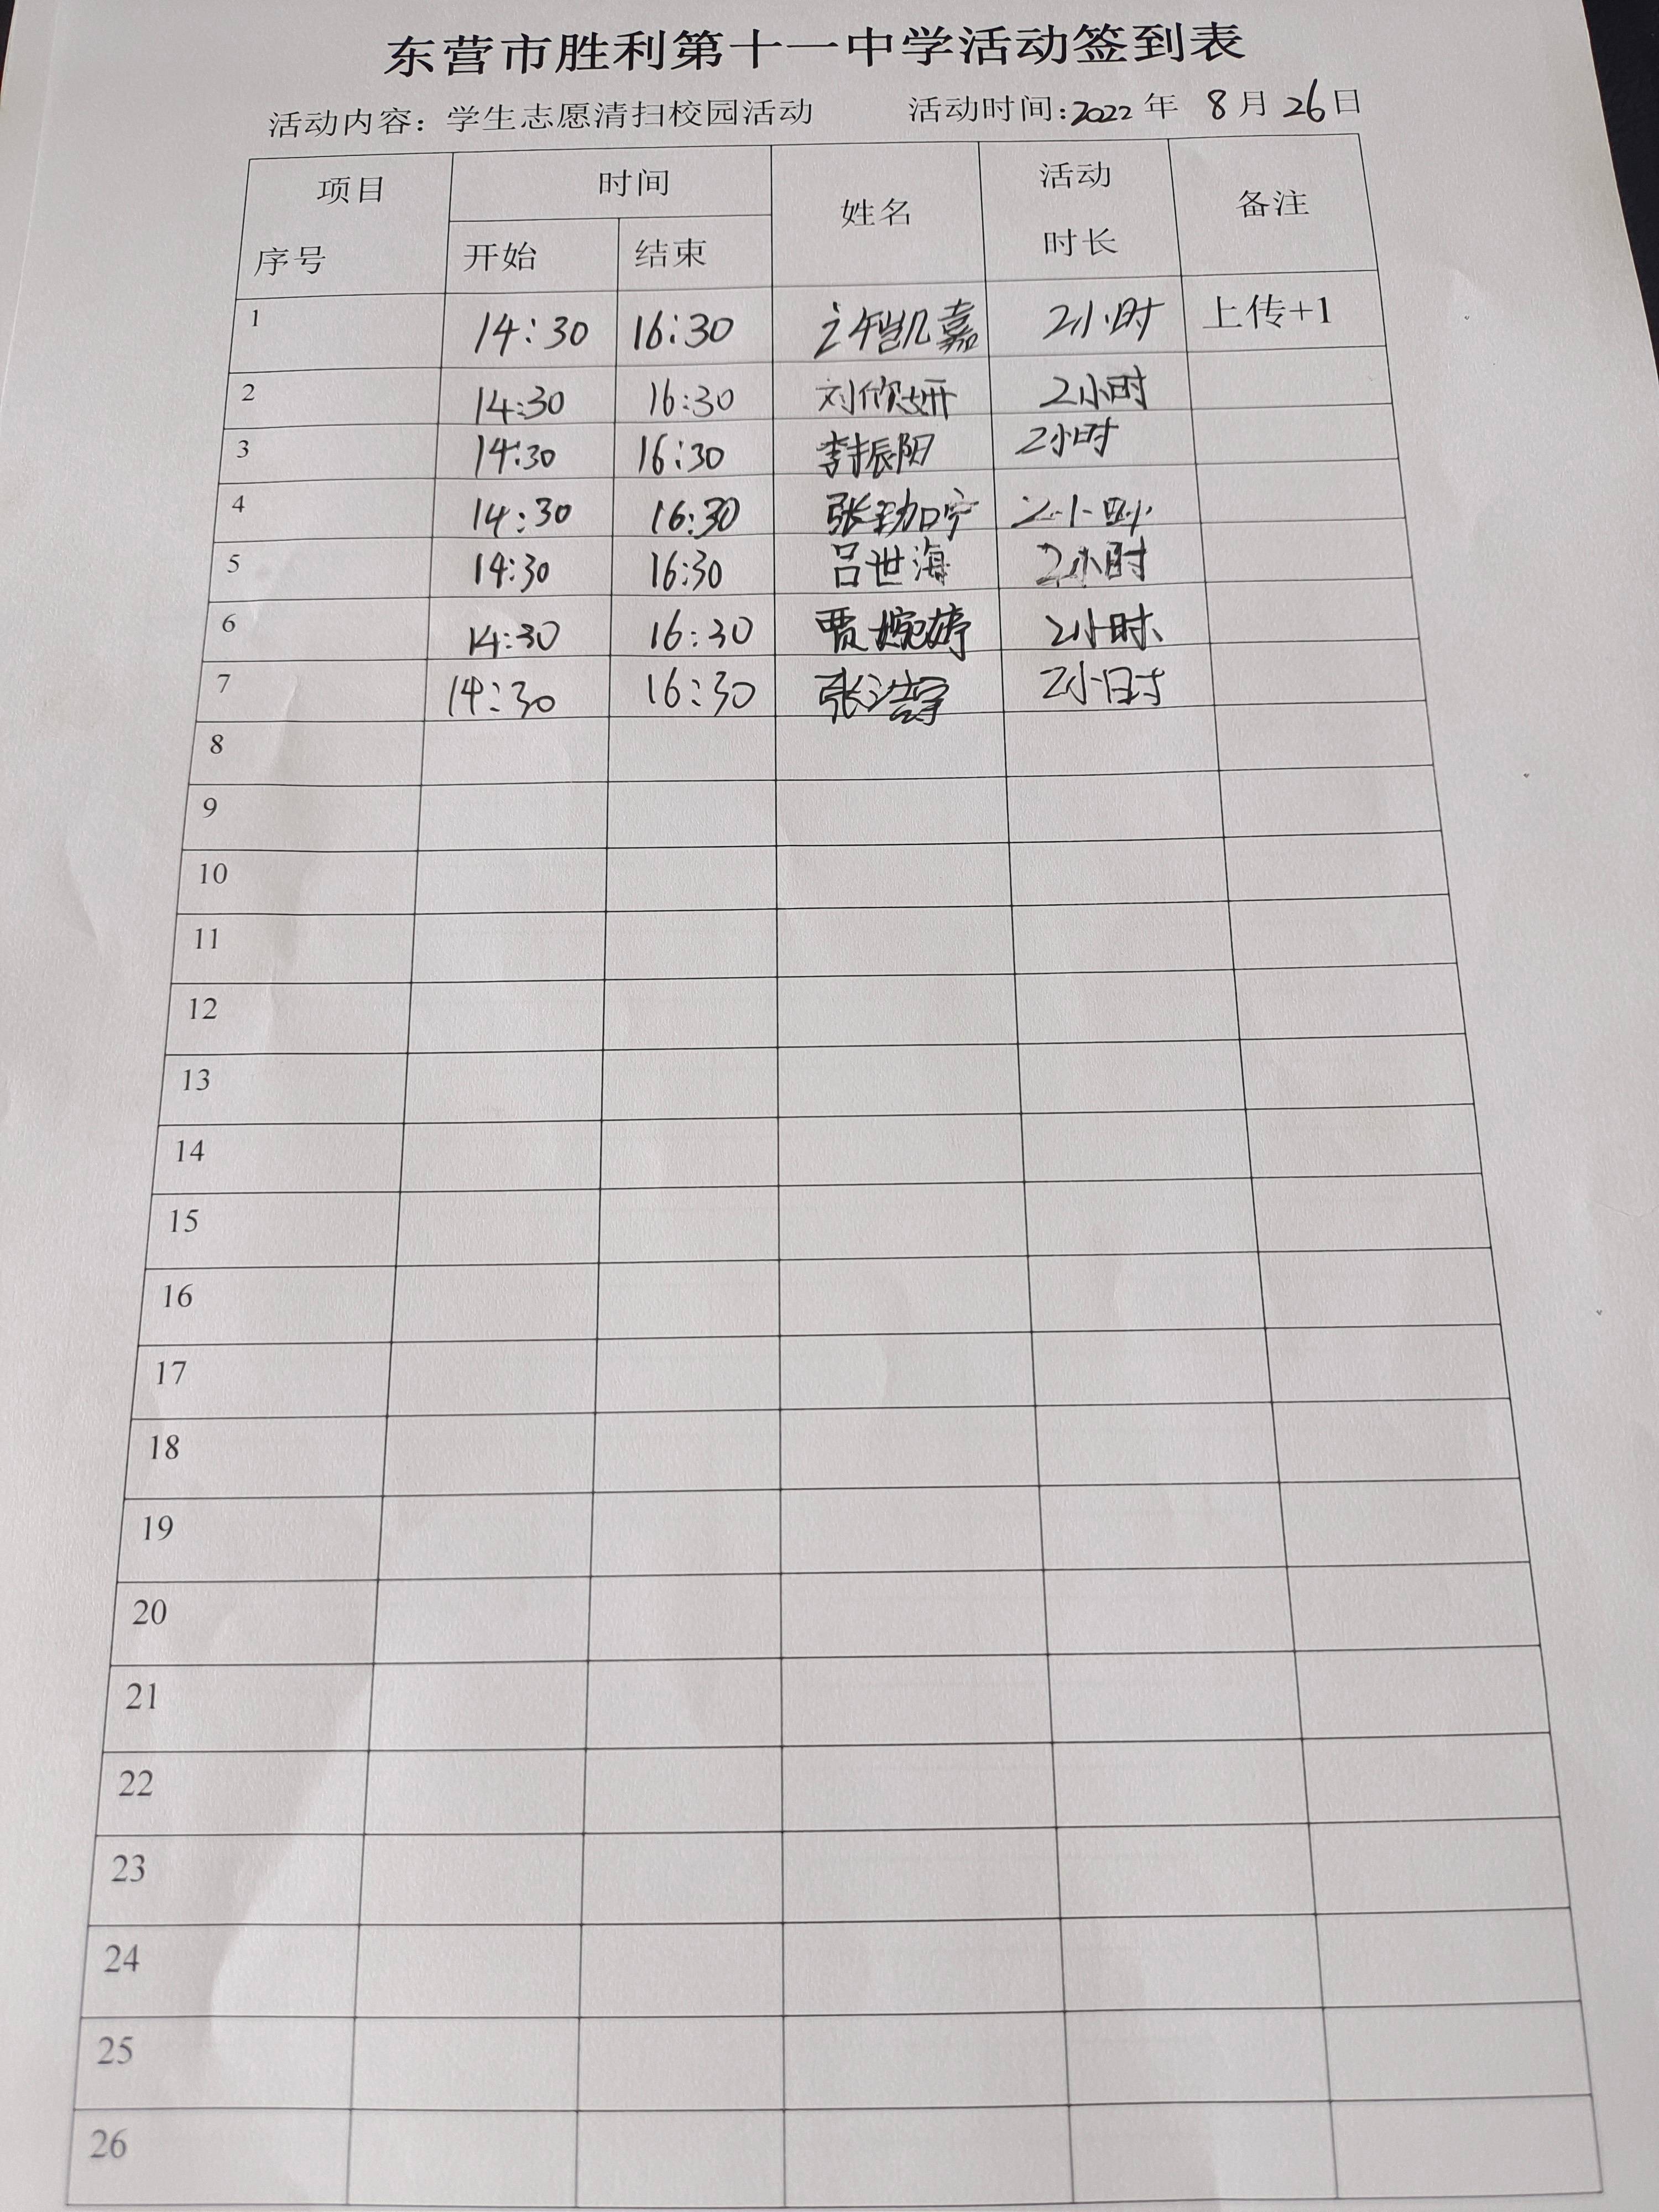 东营市胜利第十一中学活动签到表
活动内容：学生志愿清扫校园活动 活动时间：2022年 8月26日
项目 时间 姓名 活动时长 备注
序号 开始 结束
1 14:30 16:30 许凯嘉 2小时 上传+1
2 14:30 16:30 刘欣妍 2小时
3 14:30 16:30 李振阳 2小时
4 14:30 16:30 张珈宁 2小时
5 14:30 16:30 吕世海 2小时
6 14:30 16:30 贾婉婷 2小时
7 14:30 16:30 张浩宇 2小时
8
9
10
11
12
13
14
15
16
17
18
19
20
21
22
23
24
25
26